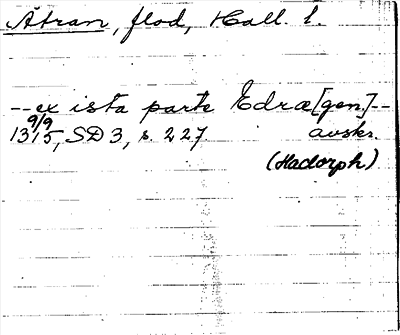 Ätran, flod, Hall. l.
-- ex ista parte Edræ [gen.] --
9/9
1315, SD 3, s. 227 avskr.
(Hadorph)